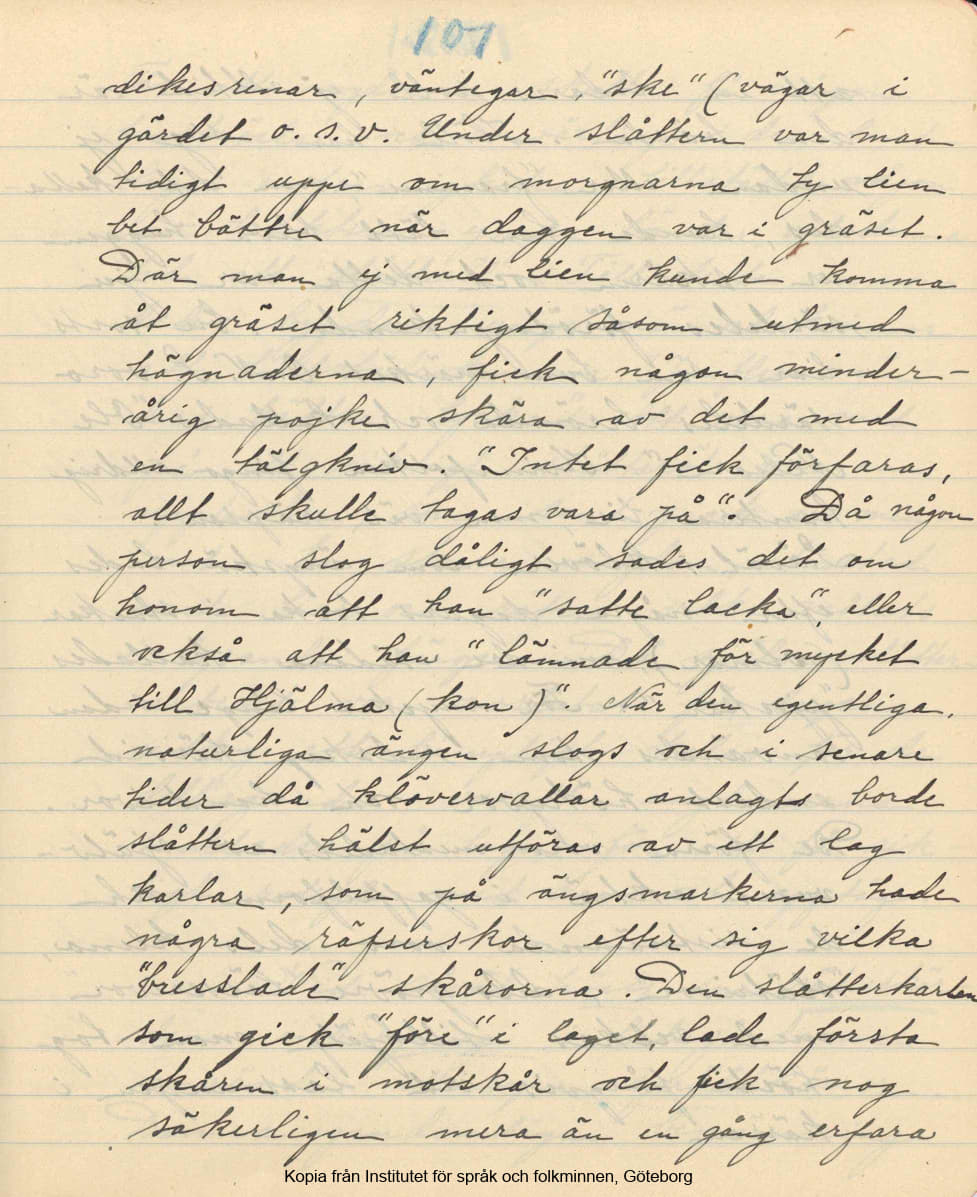 101
dikesrenar, väntegar, "ske" (vägar i
gärdet o. s. v. Under slåttern var man
tidigt uppe om morgnarna ty lien
bet bättre när daggen var i gräset.
Där man ej med lien kunde komma
åt gräset riktigt såsom utmed
hägnaderna, fick någon minder-
årig pojke skära av det med
en tälgkniv. "Intet fick förfaras,
allt skulle tagas vara på". Då någon
person slog dåligt sades det om
honom att han "satte lacka", eller
också att han "lämnade för mycket
till Hjälma (kon)". När den egentliga,
naturliga ängen slogs och i senare
tider då klövervallar anlagts borde
slåttern hälst utföras av ett lag
karlar, som på ängsmarkerna hade
några räfserskor efter sig vilka
"bresslade" skårorna. Den slåtterkarlen
som gick "före" i laget, lade första
skåren i motskår och fick nog
säkerligen mera än en gång erfara
Kopia från Institutet för språk och folkminnen, Göteborg